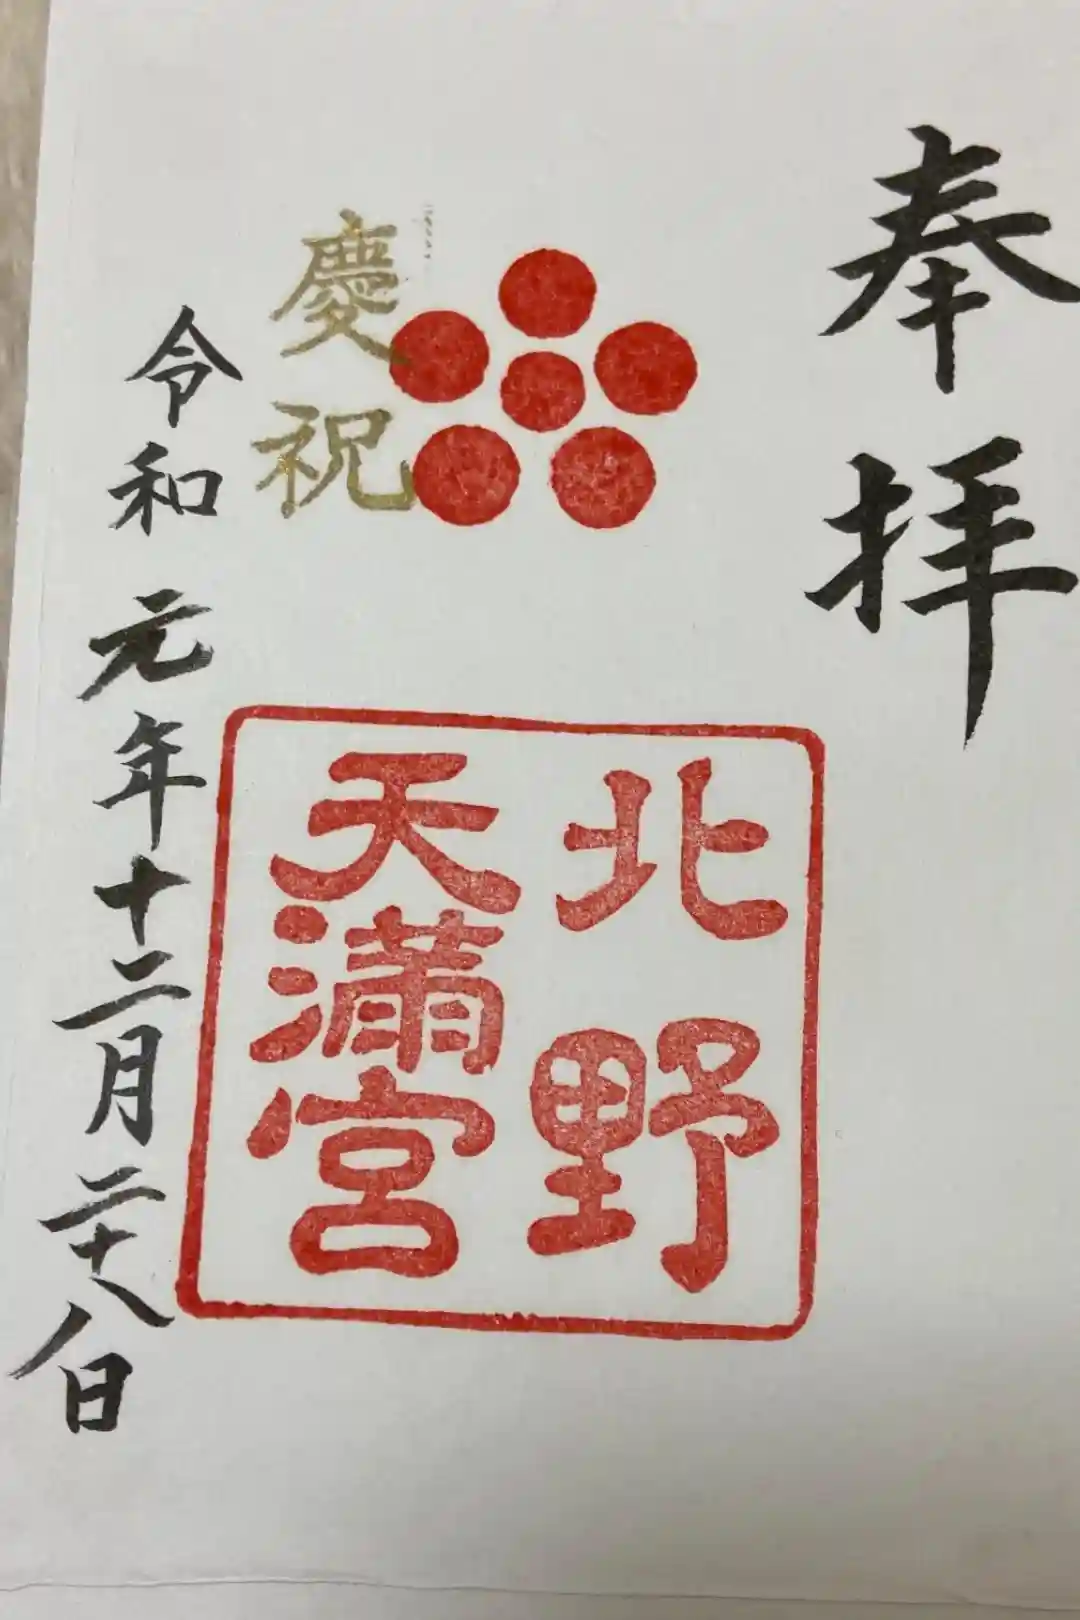 奉拝
北野
天満宮
慶祝
令和元年十二月二十八日